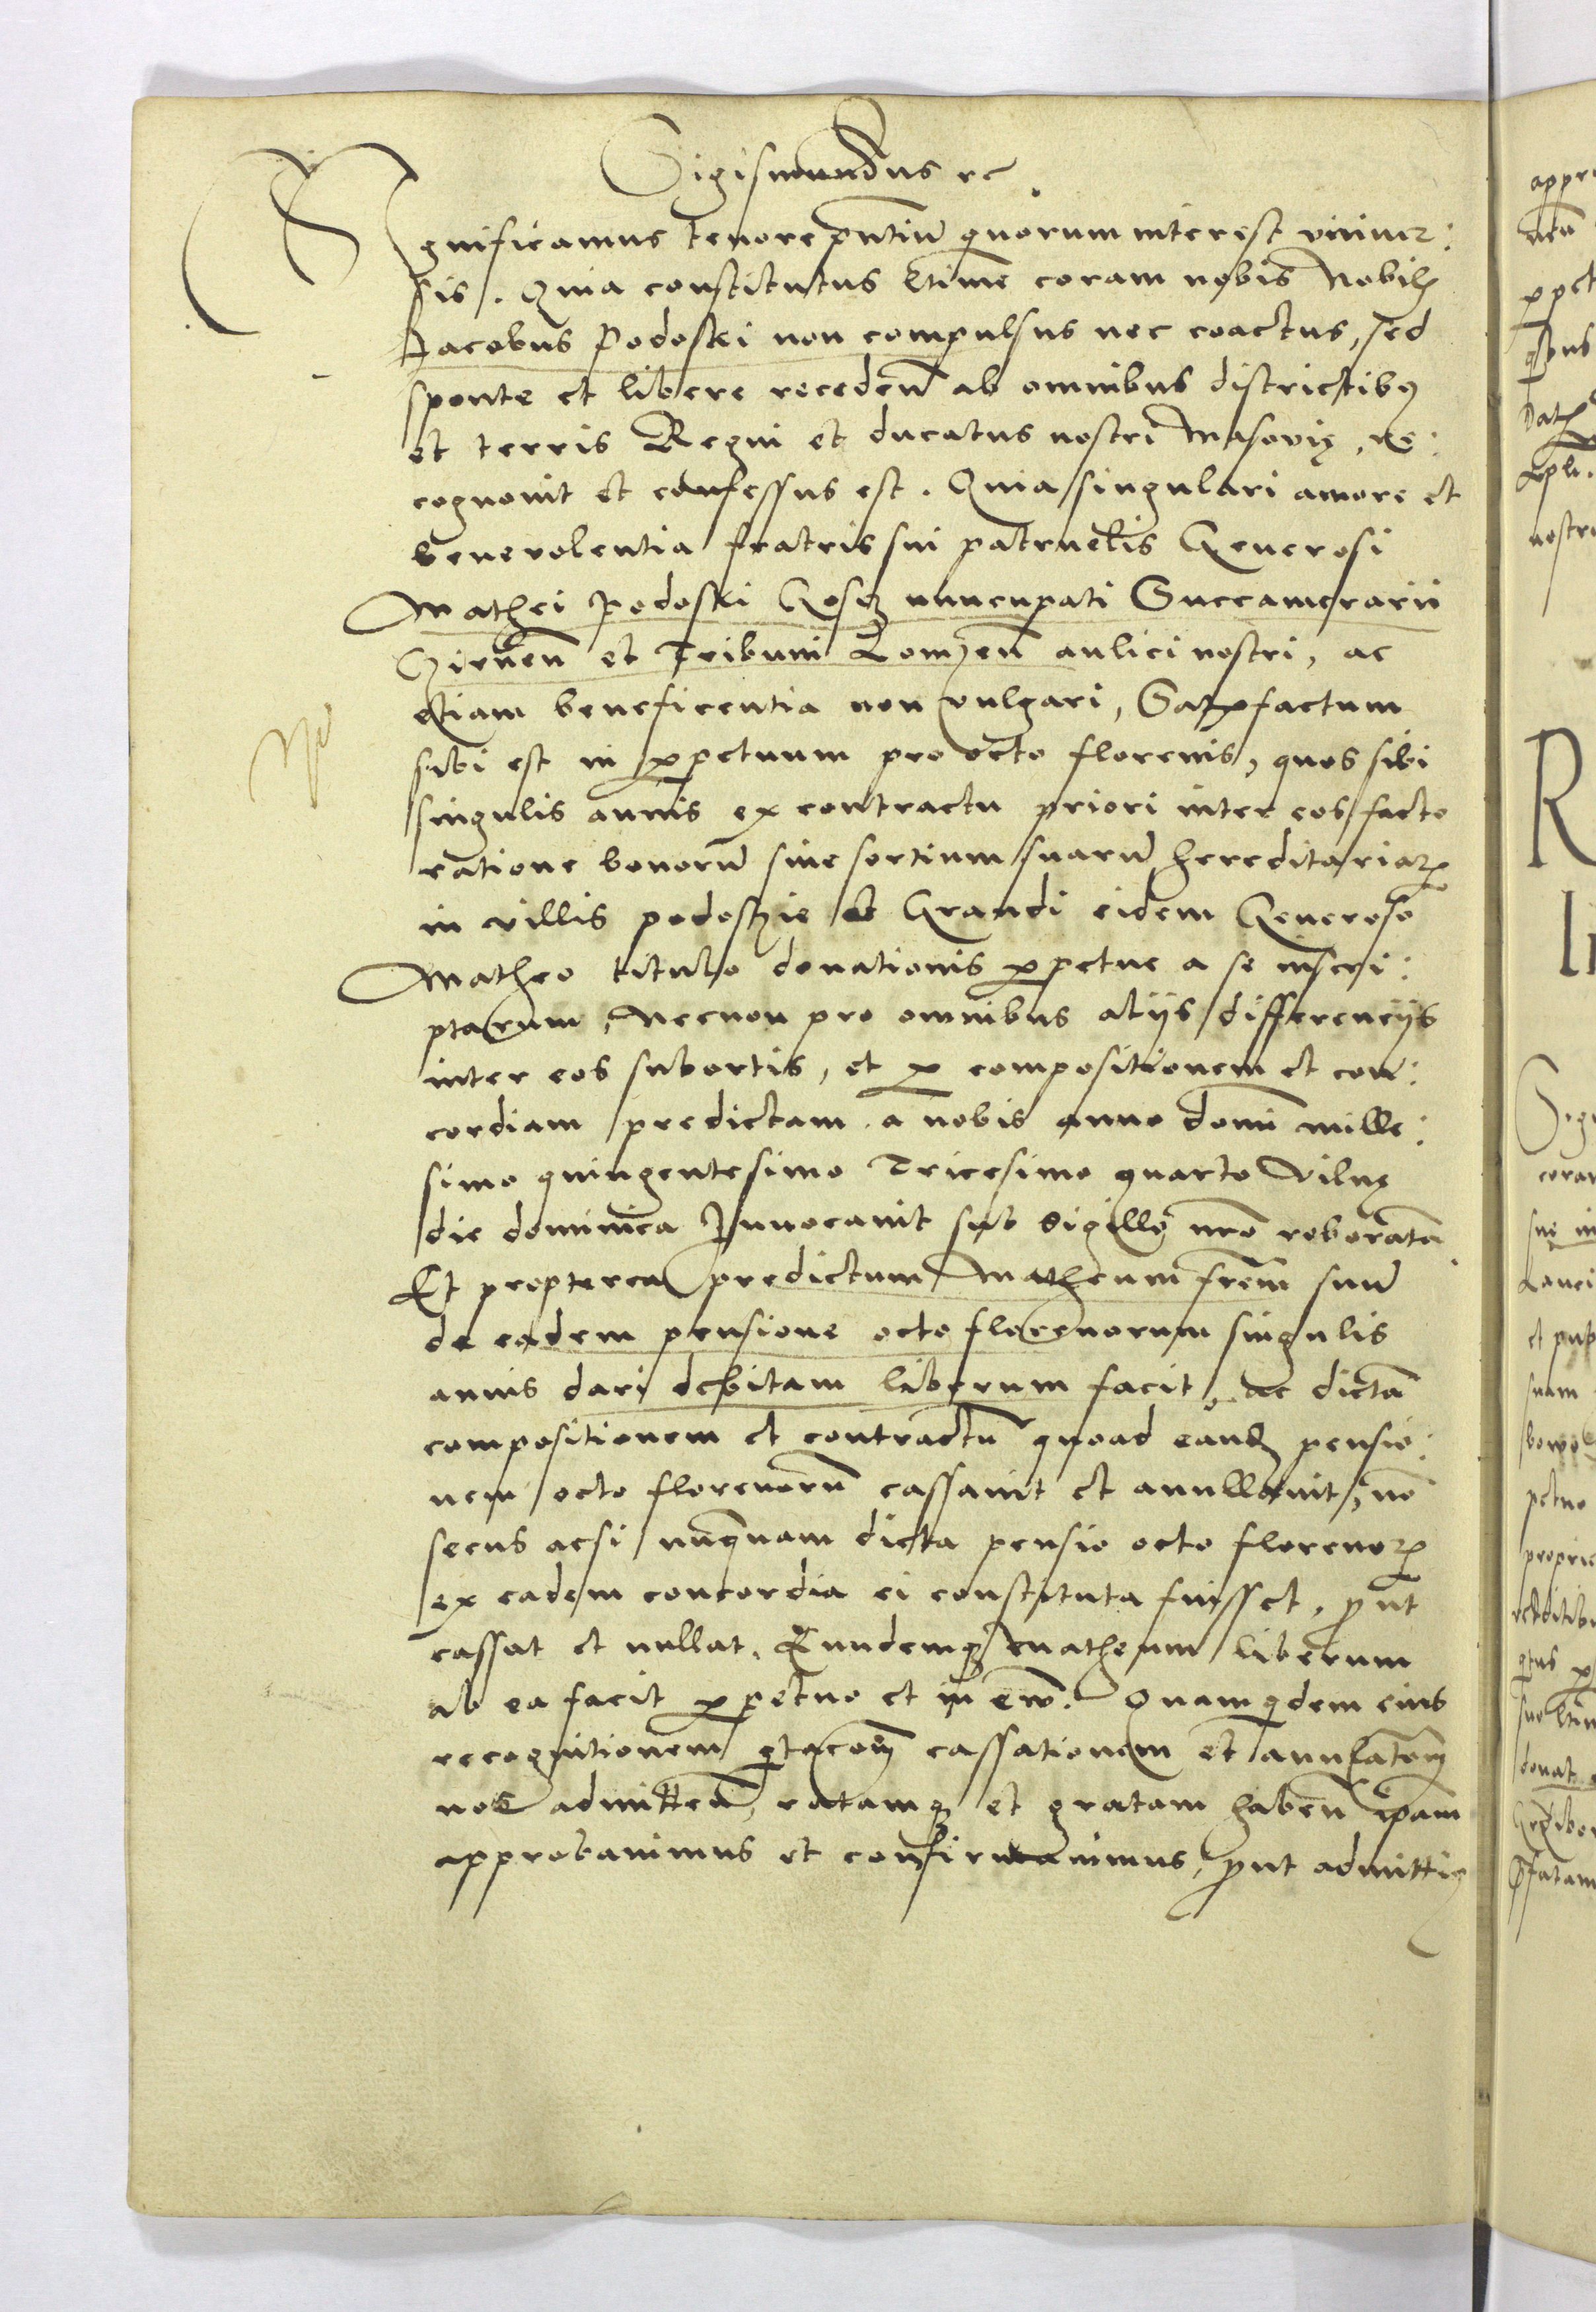 Sigismundus rc
Significamus tenore pntiũ quorum interest vniuer:
sis. Quia constitutus ltime coram nobis Nobilis
Jacobus Podoski non compulsus nec coactus, sed
sponte et libere recedeñ ab omnibus districtibus
et terris Regni et ducatus nostri Masovię, re:
cognouit et confessus est. Quia singulari amore et
beneuolentia fratris sui patruelis Generosi
Mathei Podoski nuncupati Succamerarii
et Tribuni Lomzeñ aulici nostri, ac
etiam beneficentia non vulgari, Satisfactum
sibi est in perpetuum pro octo florenis, quos sibi
singulis annis ex contractu priori inter eos facto
ratione bonorũ siue sortium suarũ hereditariarum
in villis podoszie et Grandi eidem Generoso
Matheo titulo donationis perpetue a se inscri:
ptarum, Necnon pro omnibus alijs differencijs
inter eos subortis, et per compositionem et con:
cordiam predictam a nobis anno domi mille:
simo quingentesimo Tricesimo quarto Vilnę
die dominica Innocauit sub sigillo nro roboratã
Et propterea predictum Matheum frem suũ
de eadem pensione octo florenorum singulis
annis dari debitam liberum facit, ac dictã
compositionem et contractũ quoad eandem pensio:
nem octo florenorũ cassauit et annullauit, nõ
secus acsi nunquam dicta pensio octo florenorum
ex eadem concordia ei constituta fuisset, prout
cassat et nullat, Eundemque Matheum liberum
ab ea facit perpetuo et in ewũ. Quamquidem eius
recognitionem quietacoem cassationem et annulatoem
nos admitteñ, ratamque et gratam habeñ ipam
approbauimus et confirmauimus, prout admittimus